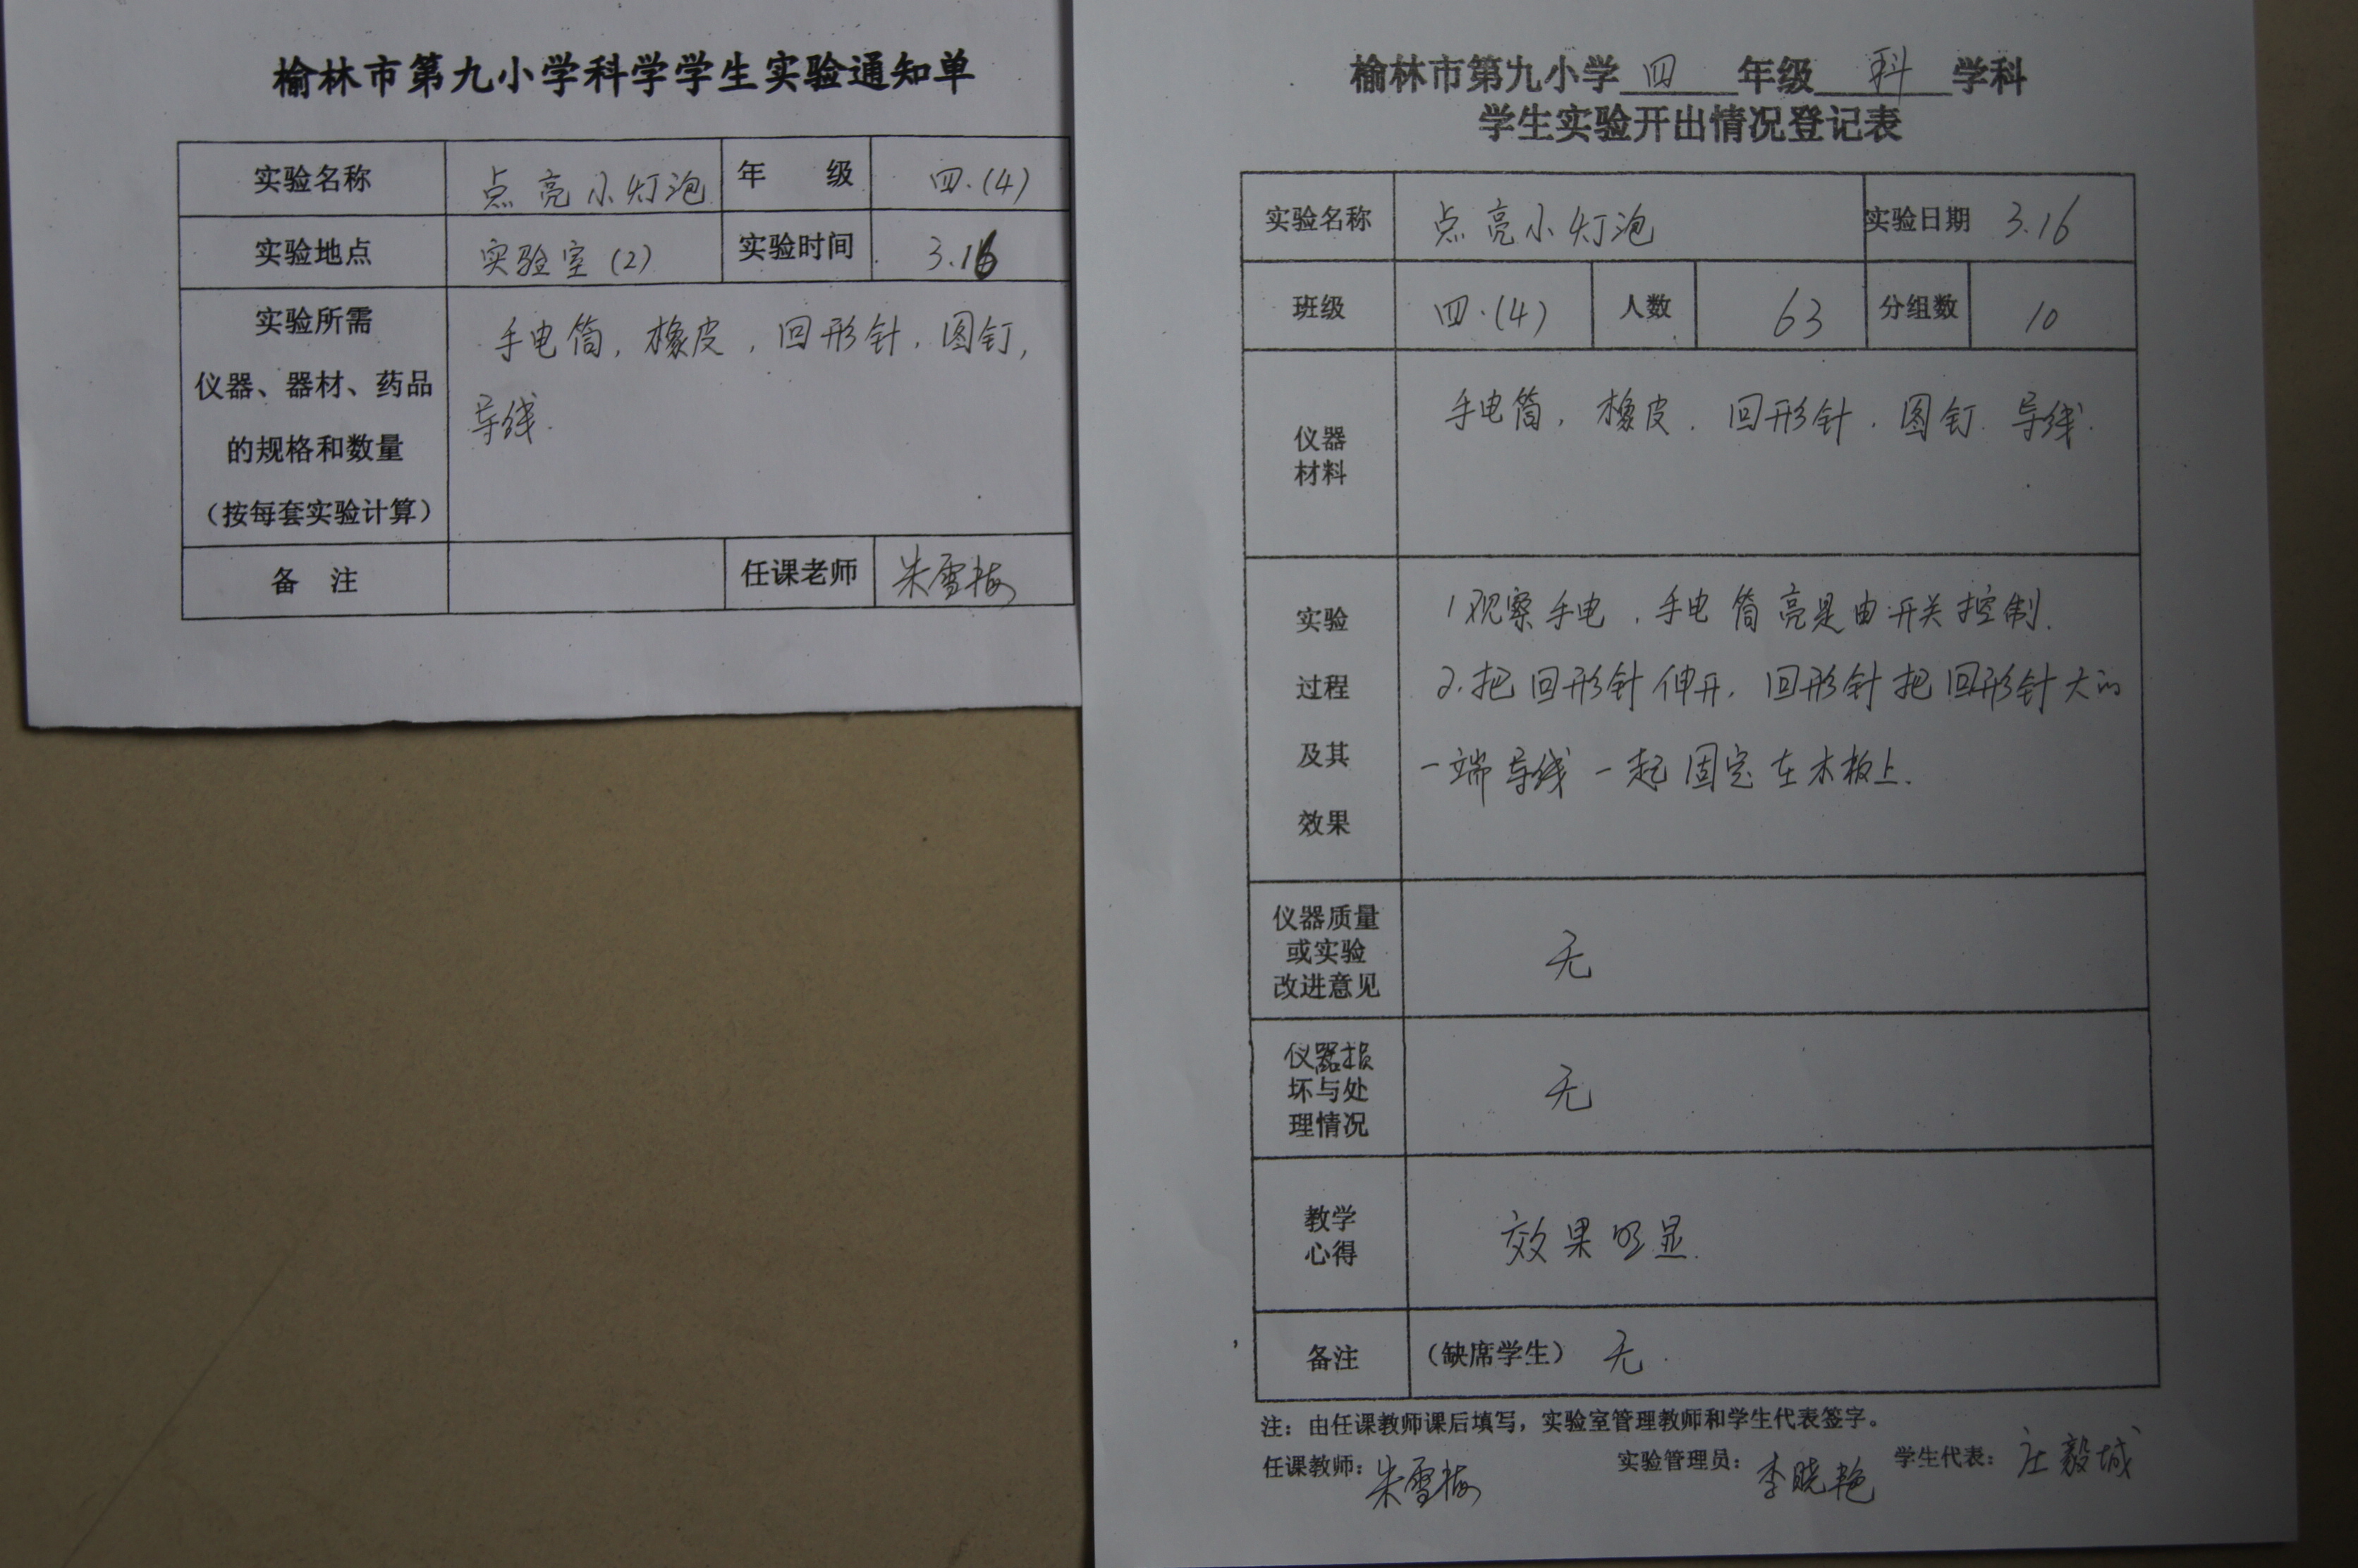 榆林市第九小学科学学生实验通知单
实验名称 点亮小灯泡 年 级 四.(4)
实验地点 实验室(2) 实验时间 3.16
实验所需
仪器、器材、药品
的规格和数量
(按每套实验计算)
手电筒,橡皮,回形针,图钉,
导线.
备 注 任课老师 朱雪梅
榆林市第九小学 四 年级 科 学科
学生实验开出情况登记表
实验名称 点亮小灯泡 实验日期 3.16
班级 四.(4) 人数 63 分组数 10
仪器
材料
手电筒,橡皮.回形针.图钉.导线.
实验
过程
及其
效果
1观察手电,手电筒亮是由开关控制.
2.把回形针伸开,回形针把回形针大的
一端导线一起固定在木板上.
仪器质量
或实验
改进意见
无
仪器损
坏与处
理情况
无
教学
心得
效果明显.
备注 (缺席学生) 无.
注:由任课教师课后填写,实验室管理教师和学生代表签字。
任课教师:朱雪梅 实验管理员:李晓艳 学生代表:庄毅城